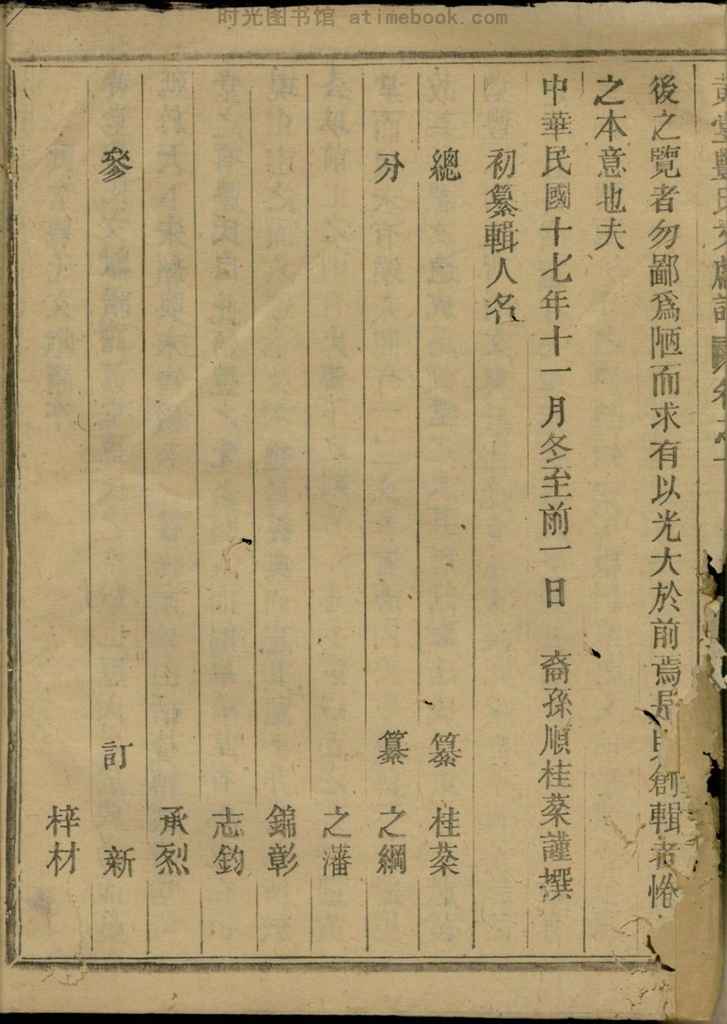 时光图书馆 atimebook.com
後之覽者勿鄙爲陋而求有以光大於前焉是則創輯者惓
之本意也夫
中華民國十七年十一月冬至前一日 裔孫順桂棻謹撰
初纂輯人名
總 纂 桂棻
分 纂 之綱
之藩
錦彰
志鈞
承烈
參 訂 新
梓材